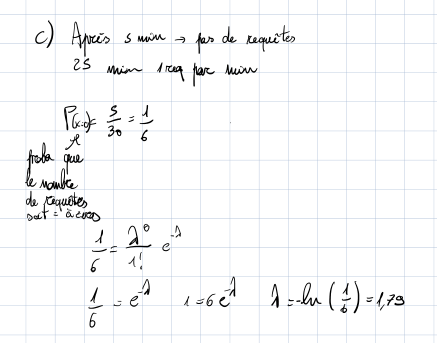 c) Après 5 min → pas de requêtes
25 min 1 req par min
P(x=0) = 5/30 = 1/6
proba que
le nombre
de requêtes
soit = à zéro
1/6 = λ⁰/1! e^-λ
1/6 = e^-λ 1 = 6e^-λ λ = -ln(1/6) = 1,79